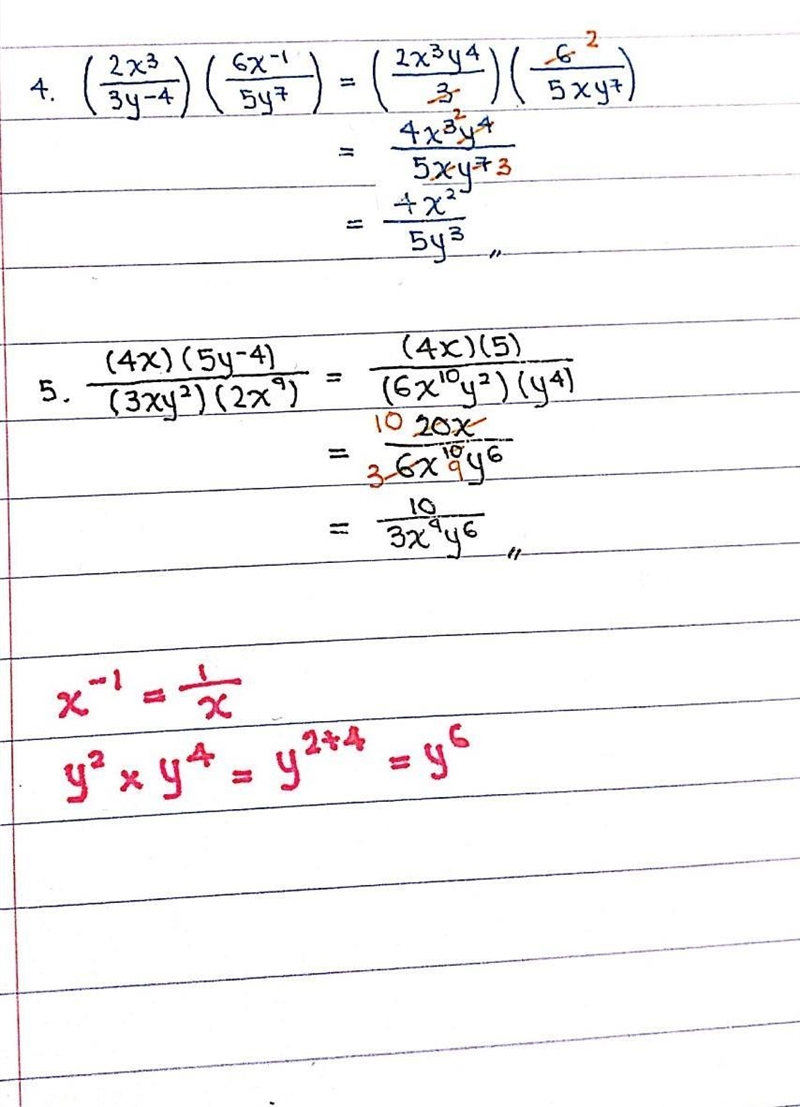 4. (2x³/3y⁻⁴) (6x⁻¹/5y⁷) = (2x³y⁴/3) (6 2/5xy⁷)
= 4x³ 2 y⁴/5xy⁷ 3
= 4x²/5y³ „
5. (4x)(5y-4)/(3xy²)(2x⁹) = (4x)(5)/(6x¹⁰y²)(y⁴)
= 10 20x/3 6x¹⁰ 9 y⁶
= 10/3x⁹y⁶ „
x⁻¹ = 1/x
y² × y⁴ = y²⁺⁴ = y⁶